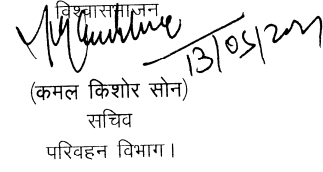 विश्वासभाजन
13/05/2021
(कमल किशोर सोन)
सचिव
परिवहन विभाग।